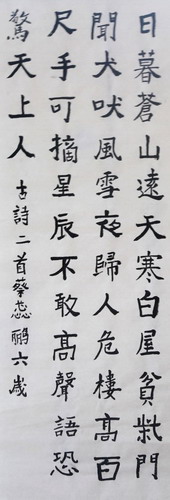 日暮蒼山遠天寒白屋貧柴門
聞犬吠風雪夜歸人危樓高百
尺手可摘星辰不敢高聲語恐
驚天上人 古詩二首蔡蕊鹇六歲